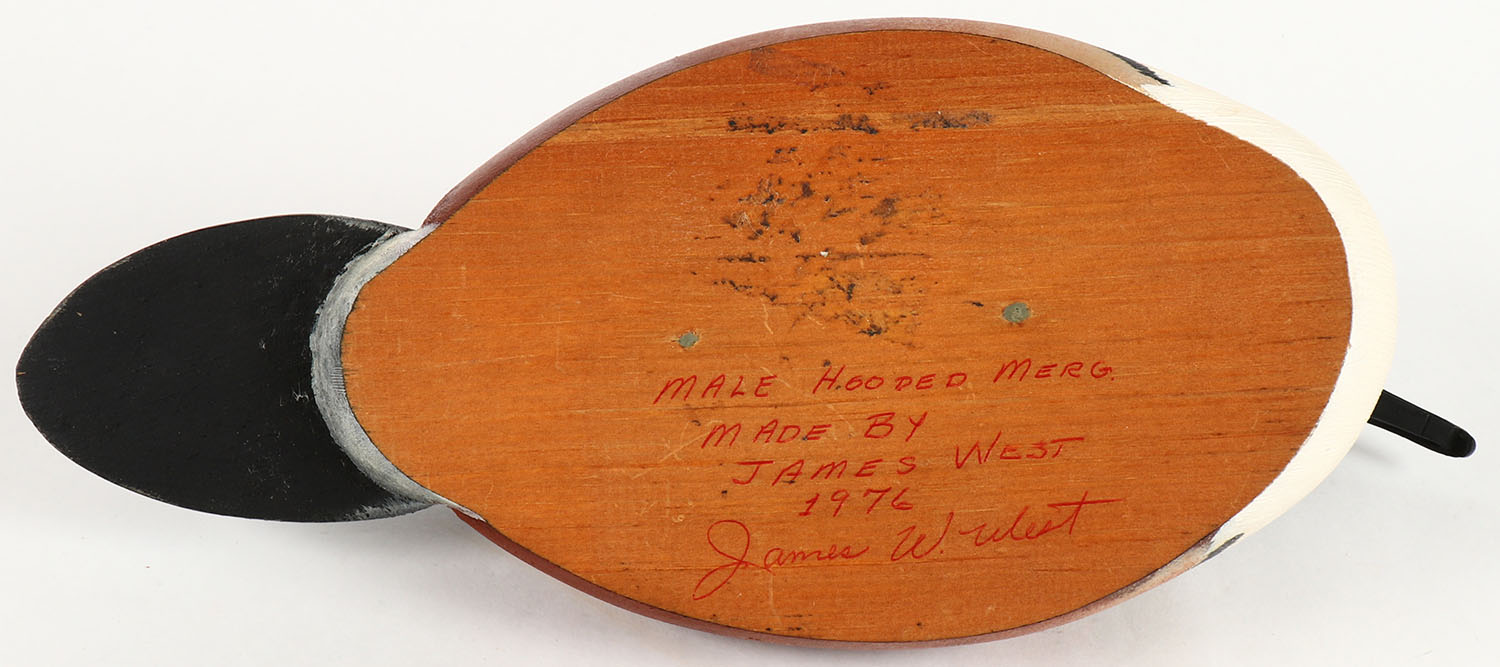 MALE HOODED MERG.
MADE BY
JAMES WEST
1976
James W. West